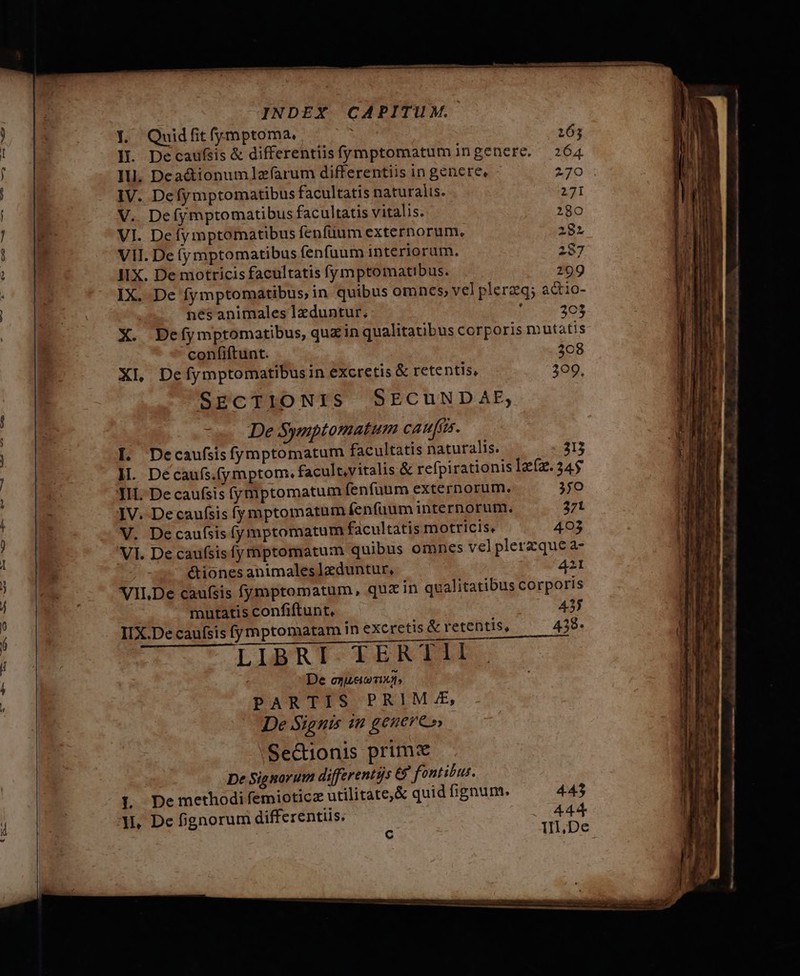 INDEX CAPITUM.
I. Quid fit fymptoma. 263
II. De caufsis & differentiis fymptomatum in genere. 264
III. De actionum læfarum differentiis in genere, 270
IV. De fymptomatibus facultatis naturalis. 271
V. De fymptomatibus facultatis vitalis. 280
VI. De fymptomatibus fenfuum externorum. 282
VII. De fymptomatibus fenfuum interiorum. 287
IIX. De motricis facultatis fymptomatibus. 299
IX. De fymptomatibus, in quibus omnes, vel pleræq; actio-
nes animales læduntur. 303
X. De fymptomatibus, quæ in qualitatibus corporis mutatis
confiftunt. 308
XI. De fymptomatibus in excretis & retentis, 309.
SECTIONIS SECUNDAE,
De Symptomatum caufsis.
I. De caufsis fymptomatum facultatis naturalis. 313
II. De caufs. fymptom. facult. vitalis & refpirationis læfæ. 345
III. De caufsis fymptomatum fenfuum externorum. 350
IV. De caufsis fymptomatum fenfuum internorum. 371
V. De caufsis fymptomatum facultatis motricis. 403
VI. De caufsis fymptomatum quibus omnes vel pleræque a-
ctiones animales læduntur, 421
VII. De caufsis fymptomatum, quæ in qualitatibus corporis
mutatis confiftunt, 435
IIX. De caufsis fymptomatam in excretis & retentis, 438.
LIBRI TERTII
De σημειωτικῇ,
PARTIS PRIMÆ,
De Signis in genere,
Sectionis primæ
De Signorum differentijs & fontibus.
I. De methodi femioticæ utilitate, & quid fignum. 443
II. De fignorum differentiis. 444
c III. De